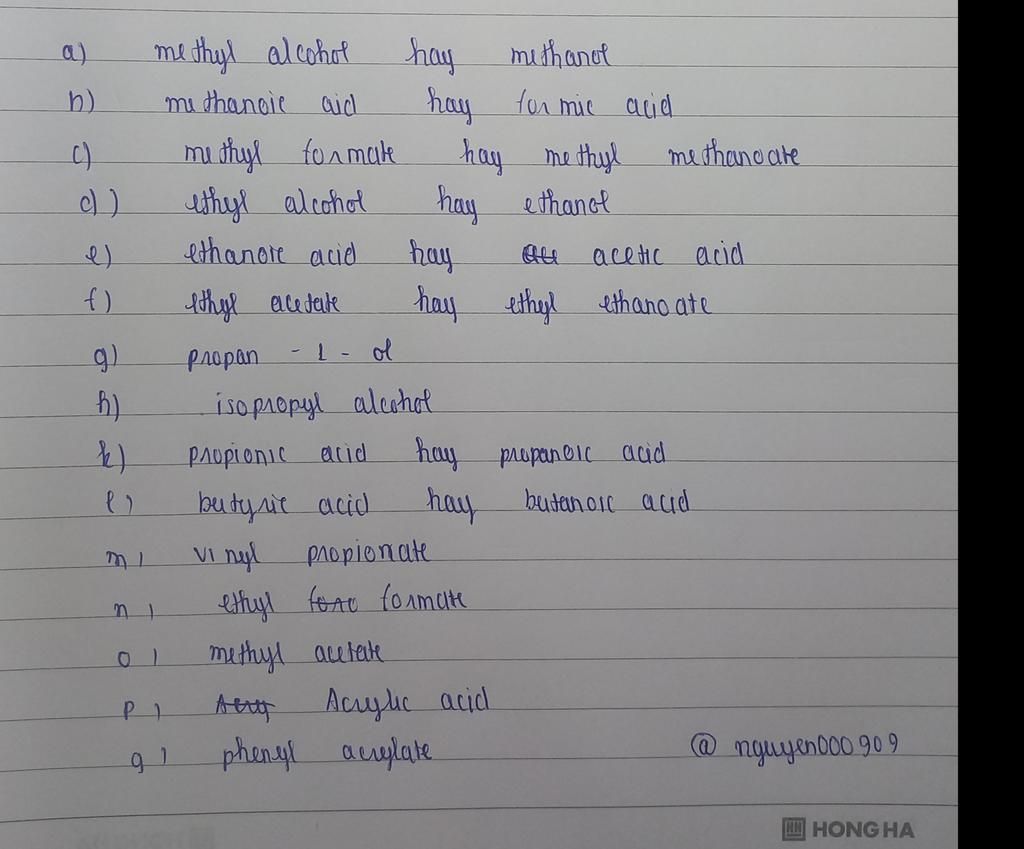 a) methyl alcohol hay methanol
b) methanoic aid hay formic acid
c) methyl formate hay methyl methanoate
d) ethyl alcohol hay ethanol
e) ethanoic acid hay acetic acid
f) ethyl acetate hay ethyl ethanoate
g) propan - 1 - ol
h) isopropyl alcohol
k) propionic acid hay propanoic acid
l) butyric acid hay butanoic acid
m) vinyl propionate
n) ethyl formate
o) methyl acetate
p) Acrylic acid
q) phenyl acrylate
@ nguyen000909
HONG HA